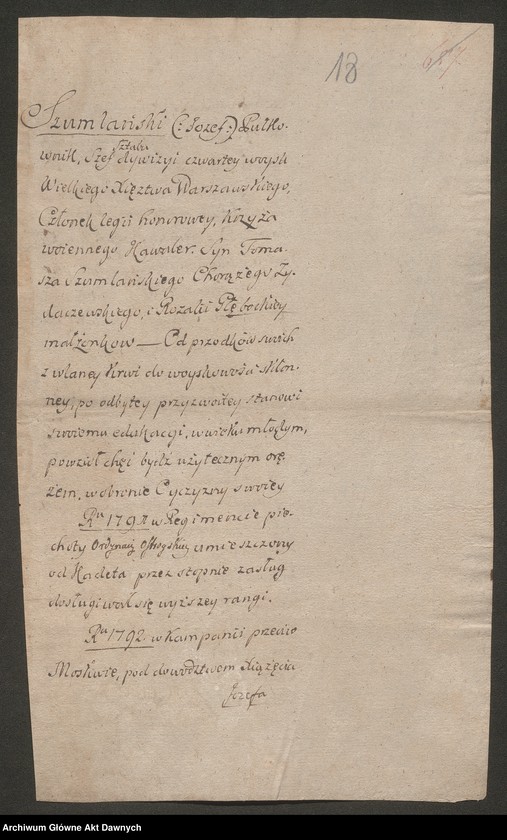 18
Szumlański (: Jozef :) Pułko-
wnik, Szef sztabu dywizyi czwartey woysk
Wielkiego Xięztwa Warszawskiego,
Członek legii honorowey, Krzyża
woiennego Kawaler. Syn Toma-
sza Szumlańskiego Chorążego Ży-
daczewskiego, i Rozalii Głębockiey
małżonkow — Od przodków swoich
z wlaney krwi do woyskowości skłon-
ney, po odbytey przyzwoitey stanowi
swoiemu edukacyi, w wieku młodym,
powziął chęć bydź użytecznym orę-
żem, w obronie Oyczyzny swoiey
Ru 1791 w Regimencie pie-
choty Ordynacyi Ostrogskiey umieszczony
od Kadeta przez stopnie zasług
dosługiwał się wyższey rangi.
Ru 1792 w kampanii przeciw
Moskwie, pod dowództwem Xiążęcia
Jozefa
Archiwum Główne Akt Dawnych